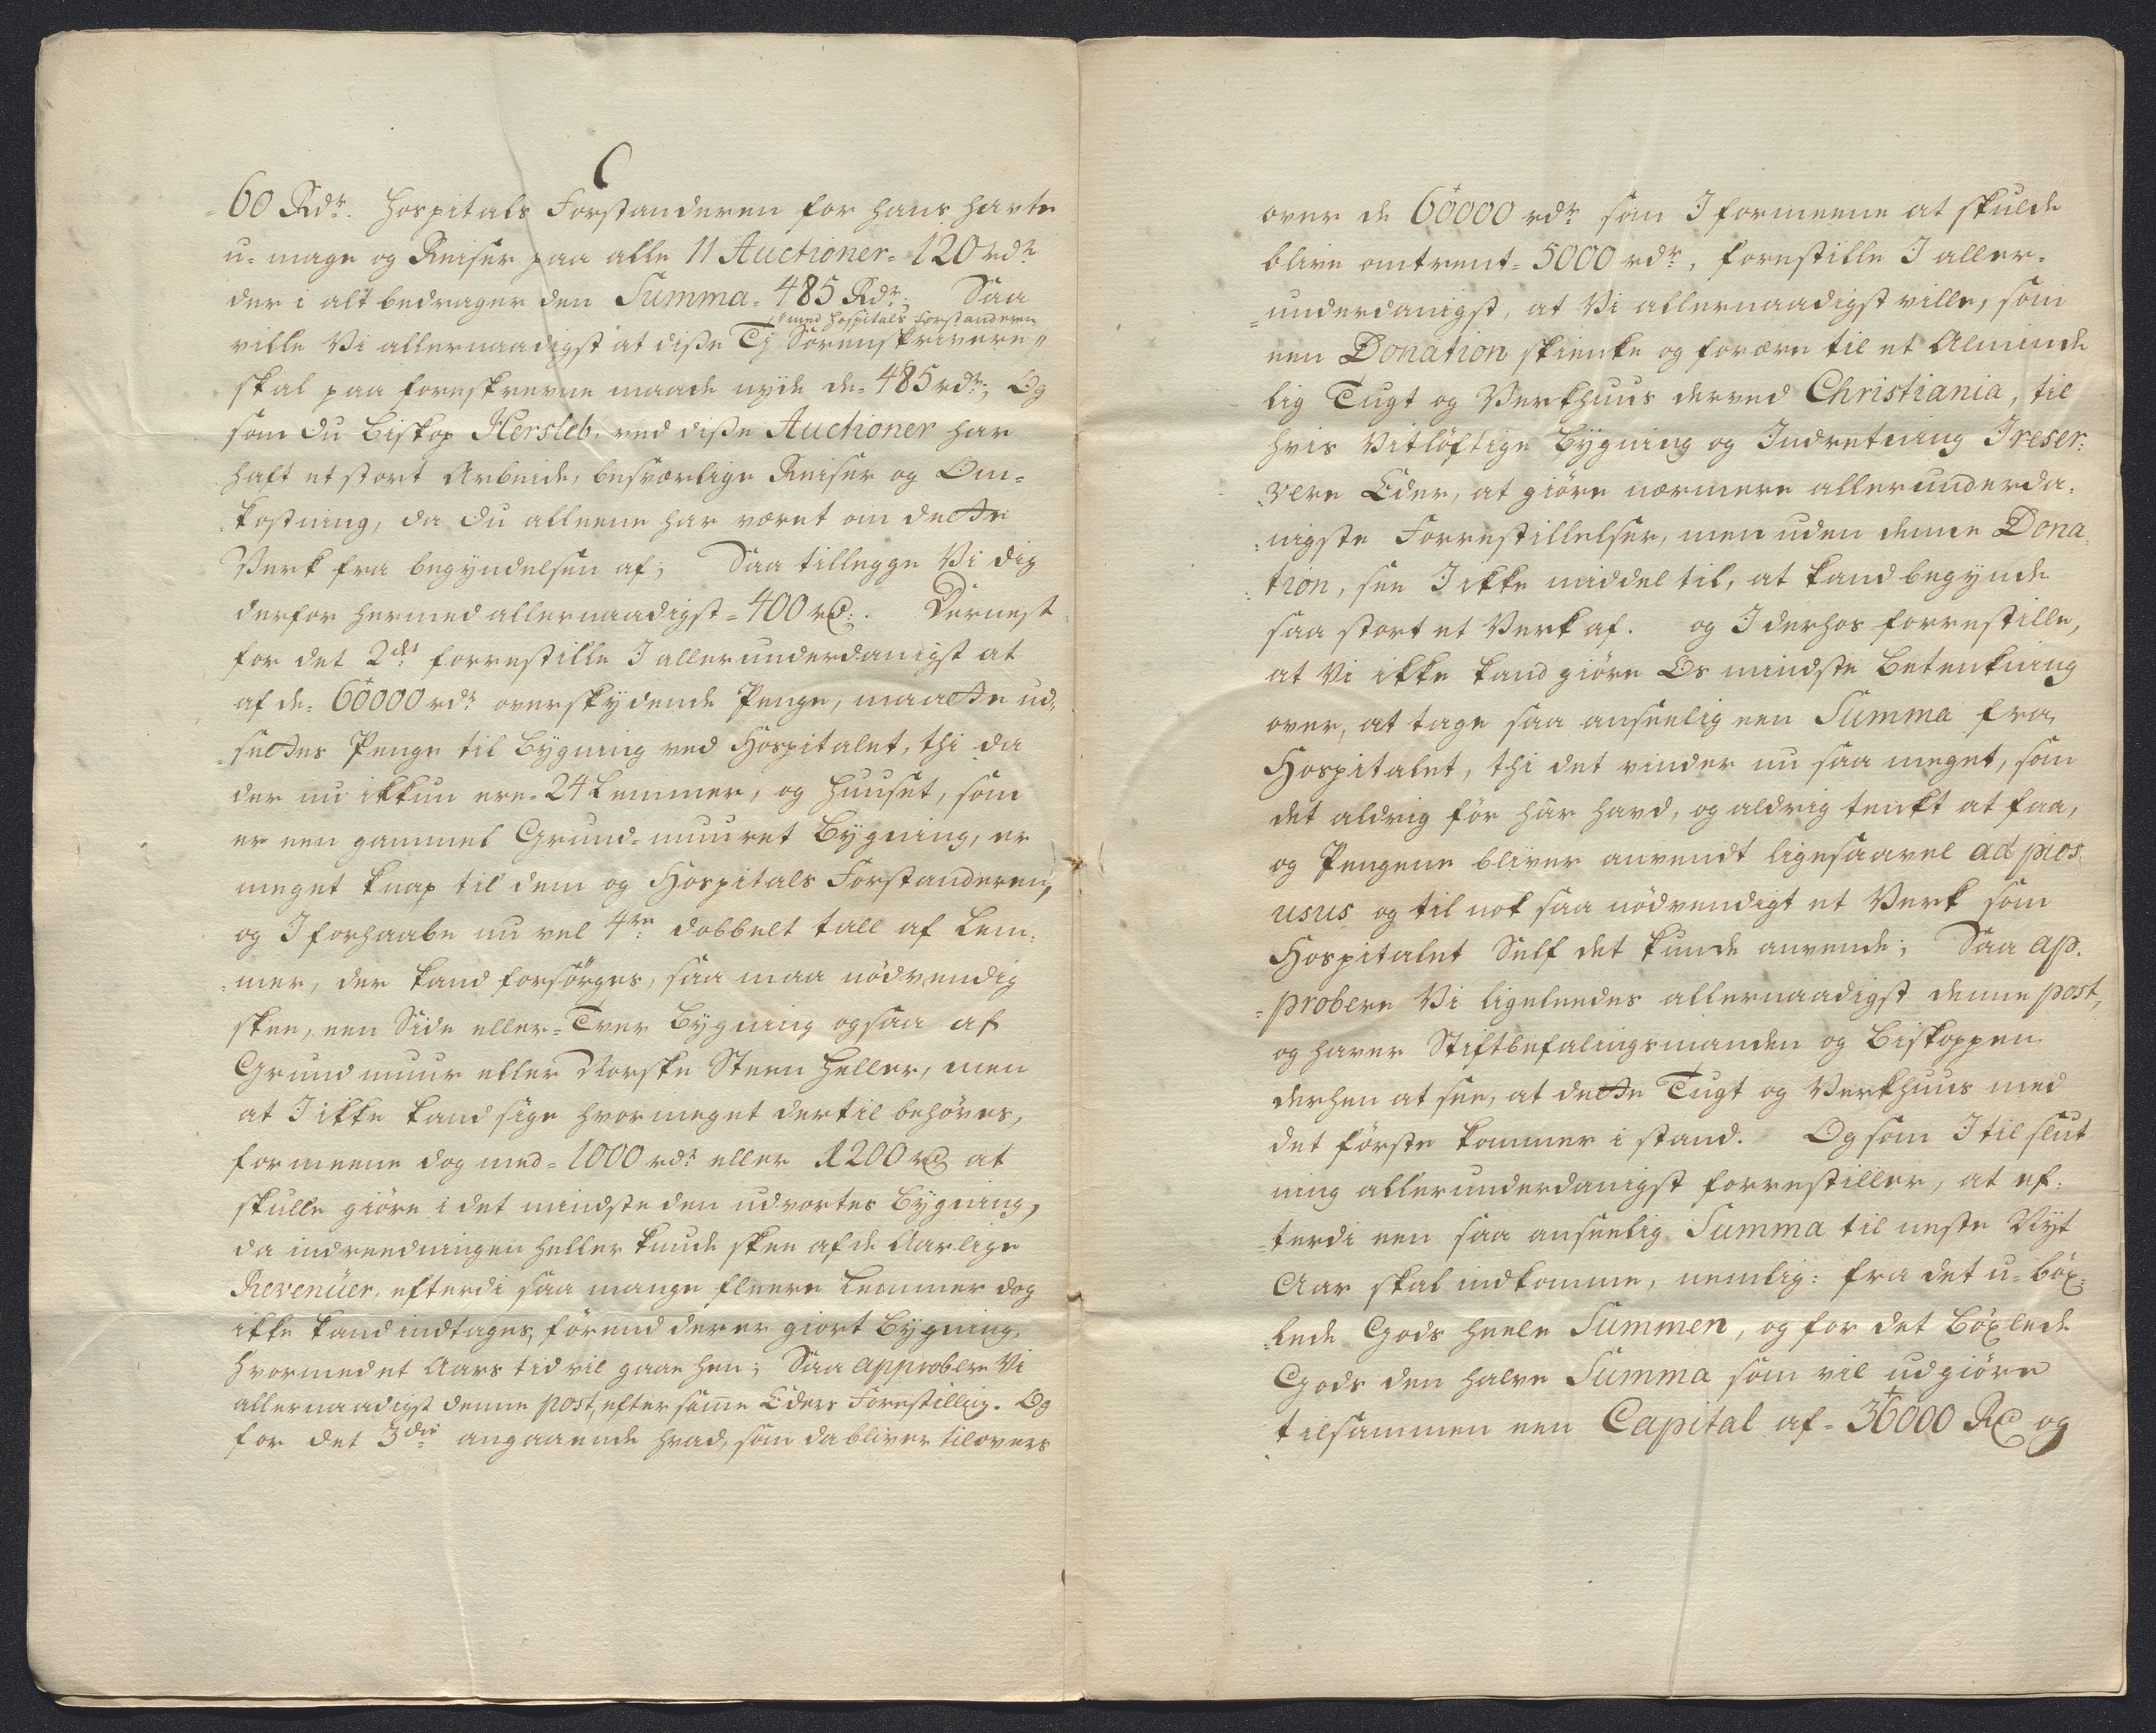 60 Rdr. Hospitals Forstanderen for hans havte
u-mage og Reiser paa alle 11 Auctioner = 120 rdr
der i alt bedrager den Summa = 485 Rdr; Saa
" med Hospitals Forstanderen
ville Vi allernaadigst at diße Tj Sorenskrivere "
skal paa foreskrevne maade nyde de = 485 rdr; Og
som du Biskop Hersleb, ved diße Auctioner har
haft et stort Arbeide, besværlige Reiser og Om=
kostning, da du alleene har været om dette
Verk fra begyndelsen af; Saa tillegge Vi dig
derfor hermed allernaadigst = 400 rd:. Dernest
for det 2det forrestille I allerunderdanigst at
af de = 60000 rdr overskydende Penge, maatte ud=
settes Penge til Bygning ved Hospitalet, thi da
der nu ikkun ere = 24 Lemmer, og Huuset, som
er een gammel Grund=muuret Bygning, er
meget knap til dem og Hospitals Forstanderen,
og I forhaabe nu vel 4re dobbelt tall af Lem=
=mer, der kand forsörges, saa maa nödvendig
skee, een Side eller = Tver Bygning ogsaa af
Grundmuur eller Norske Steen Heller, men
at I ikke kand sige hvormeget dertil behöves,
formeene dog med = 1000 rdr eller 1200 rd at
skulle giöre i det mindste den udvortes Bygning,
da indreedningen heller kunde skee af de Aarlige
Revenüer, efterdi saa mange fleere Lemmer dog
ikke kand indtages, förend der er giort Bygning,
hvormed et Aars tid vil gaae hen; Saa approbere Vi
allernaadigst denne post, efter samme Eders Forestilling. Og
for det 3die angaaende hvad, som da bliver tilovers
over de 60000 rdr som I formeene at skulde
blive omtrent = 5000 rdr, forestille I aller=
=underdanigst, at Vi allernaadigst ville, som
een Donation skienke og forære til et Alminde
lig Tugt og Verkhuus derved Christiania, til
hvis Vitlöftige Bygning og Indretning I reser=
=vere Eder, at giöre nærmere allerunderda=
=nigste Forrestillelser, men uden denne Dona
=tion, see I ikke middel til, at kand begynde
saa stort et Verk af. og I derhos forrestille,
at Vi ikke kand giöre Os mindste Betenkning
over, at tage saa anseelig een Summa fra
Hospitalet, thi det vinder nu saa meget, som
det aldrig för har havd, og aldrig tenkt at faa,
og Pengene bliver anvendt ligesaavel ad pios
usus og til nok saa nödvendigt et Verk som
Hospitalet Self det kunde anvende; Saa ap=
=probere Vi ligeleedes allernaadigst denne post,
og haver Stiftbefalingsmanden og Biskoppen
derhen at see, at dette Tugt og Verkhuus med
det förste kommer i stand. Og som I til slut
ning allerunderdanigst forrestiller, at ef=
=terdi een saa anseelig Summa til neste Nyt
Aar skal indkomme, nemlig: fra det u=böx=
=lede Gods heele Summen, og for det Böxlede
Gods den halve Summa som vil udgiöre
tilsammen een Capital af = 36000 Rd og